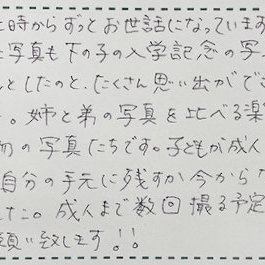 と時からずっとお世話になっています
写真も下の子の入学記念の写
としたのと、たくさん思い出ができ
。姉と弟の写真を比べる楽
の写真たちです。子どもが成人
自分の手元に残すか今から
た。成人まで数回撮る予定
願い致します!!